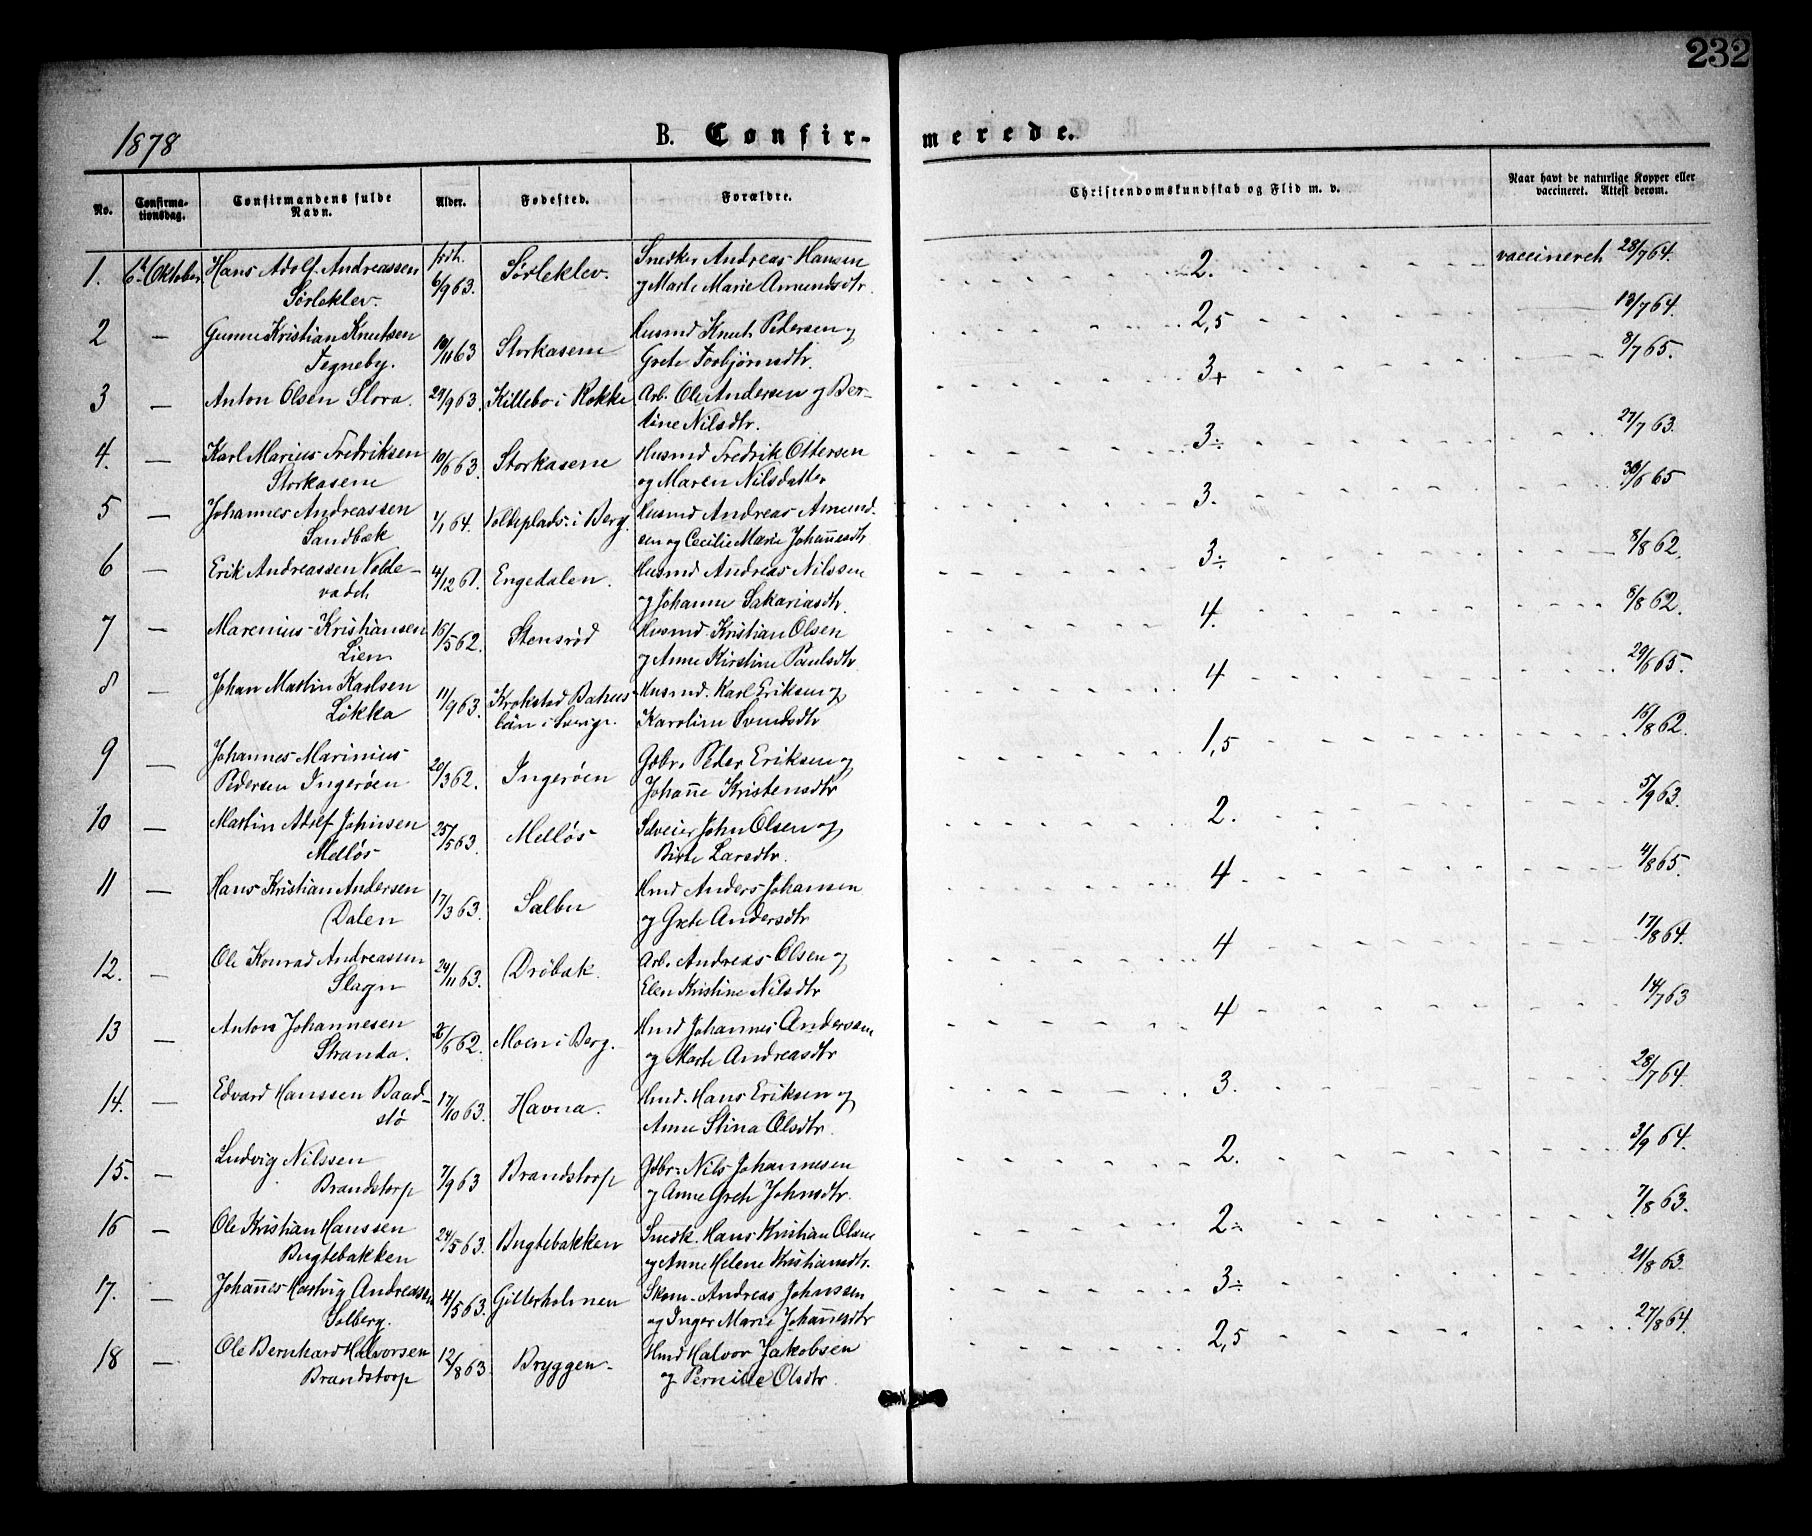 232
1878
B. Confir-
merede.
No.
Confirma-
tionsdag.
Confirmandens fulde
Navn.
Alder.
Fødested.
Forældre.
Christendomskundskab og Flid m. v.
Naar havt de naturlige Kopper eller
vaccineret. Attest derom.
1. 6te Oktober Hans Adolf Andreassen født Snedker Andreas Hansen
Sørleklev. 6/9 63. Sørleklev. og Marte Marie Amundsdtr. 2. vaccineret 28/7 64.
2 — Gunne Kristian Knutsen Husmd Knut Pedersen og
Tegneby. 10/11 63 Storkasene Grete Torbjørnsdtr. 2,5 13/7 64.
3 — Anton Olsen Slora. 29/9 63. Killebo i Rokke Arb. Ole Andersen og Ber-
tine Nilsdtr. 3+ 8/7 65.
4. — Karl Marius Fredriksen 10/6 63. Storkasene Husmd Fredrik Ottersen
Storkasene og Maren Nilsdatter 3÷ 27/7 63.
5 — Johannes Andreassen 1/1 64. Voldeplads i Berg. Husmd Andreas Amund-
Sandbæk sen og Cecilie Marie Johannesdtr 3. 30/6 65
6 — Erik Andreassen Volde- 4/12 61. Engedalen. Husmd Andreas Nilssen
vadet og Johanne Sakariasdtr. 3÷ 8/8 62.
7 — Marenius Kristiansen 16/5 62. Stensrød Husmd Kristian Olsen
Lien og Anne Kirstine Paulsdtr 4. 8/8 62.
8 — Johan Martin Karlsen 11/9 63. Krokstad Bahus- Husmd. Karl Eriksen og
Løkka län i Sverige. Karoline Svendsdtr 4 29/6 65.
9 — Johannes Marinius Gdbr. Peder Eriksen og
Pedersen Ingerøen 20/3 62. Ingerøen Johanne Kristensdtr 1,5 16/8 62.
10 — Martin Adolf Johnsen 25/5 63. Melløs Selveier John Olsen og
Melløs Birte Larsdtr. 2. 5/9 63.
11 — Hans Kristian Andersen 17/3 63. Sælbu Hmd Anders Johansen
Dalen og Grete Andersdtr 4 4/8 65.
12. — Ole Konrad Andreassen 24/11 63. Drøbak. Arb. Andreas Olsen og
Slagn Elen Kristine Nilsdtr 4 17/8 64.
13 — Anton Johannesen 26/6 62. Moen i Berg. Hmd Johannes Andersen
Stranda. og Marte Andreasdtr 4 14/7 63
14. — Edvard Hanssen Baad- 17/10 63. Havna. Hmd. Hans Eriksen og
stø Anne Stina Olsdtr. 3. 28/7 64.
15. — Ludvig Nilssen Gdbr. Nils Johannesen
Brandstorp 7/9 63 Brandstorp og Anne Grete Johnsdtr. 2. 3/9 64.
16 — Ole Kristian Hanssen 24/5 63. Bugtebakken Snedk. Hans Kristian Olsen
Bugtebakken og Anne Helene Kristiansdtr. 2÷ 7/8 63.
17. — Johannes Hartvig Andreassen 14/5 63. Gitterholmen Skom. Andreas Johnssen
Solberg. og Inger Marie Johannesdtr 3÷ 21/8 63.
18 — Ole Bernhard Halvorsen 12/8 63. Bryggen. Hmd Halvor Jakobsen
Brandstorp og Pernille Olsdtr. 2,5 27/8 64.